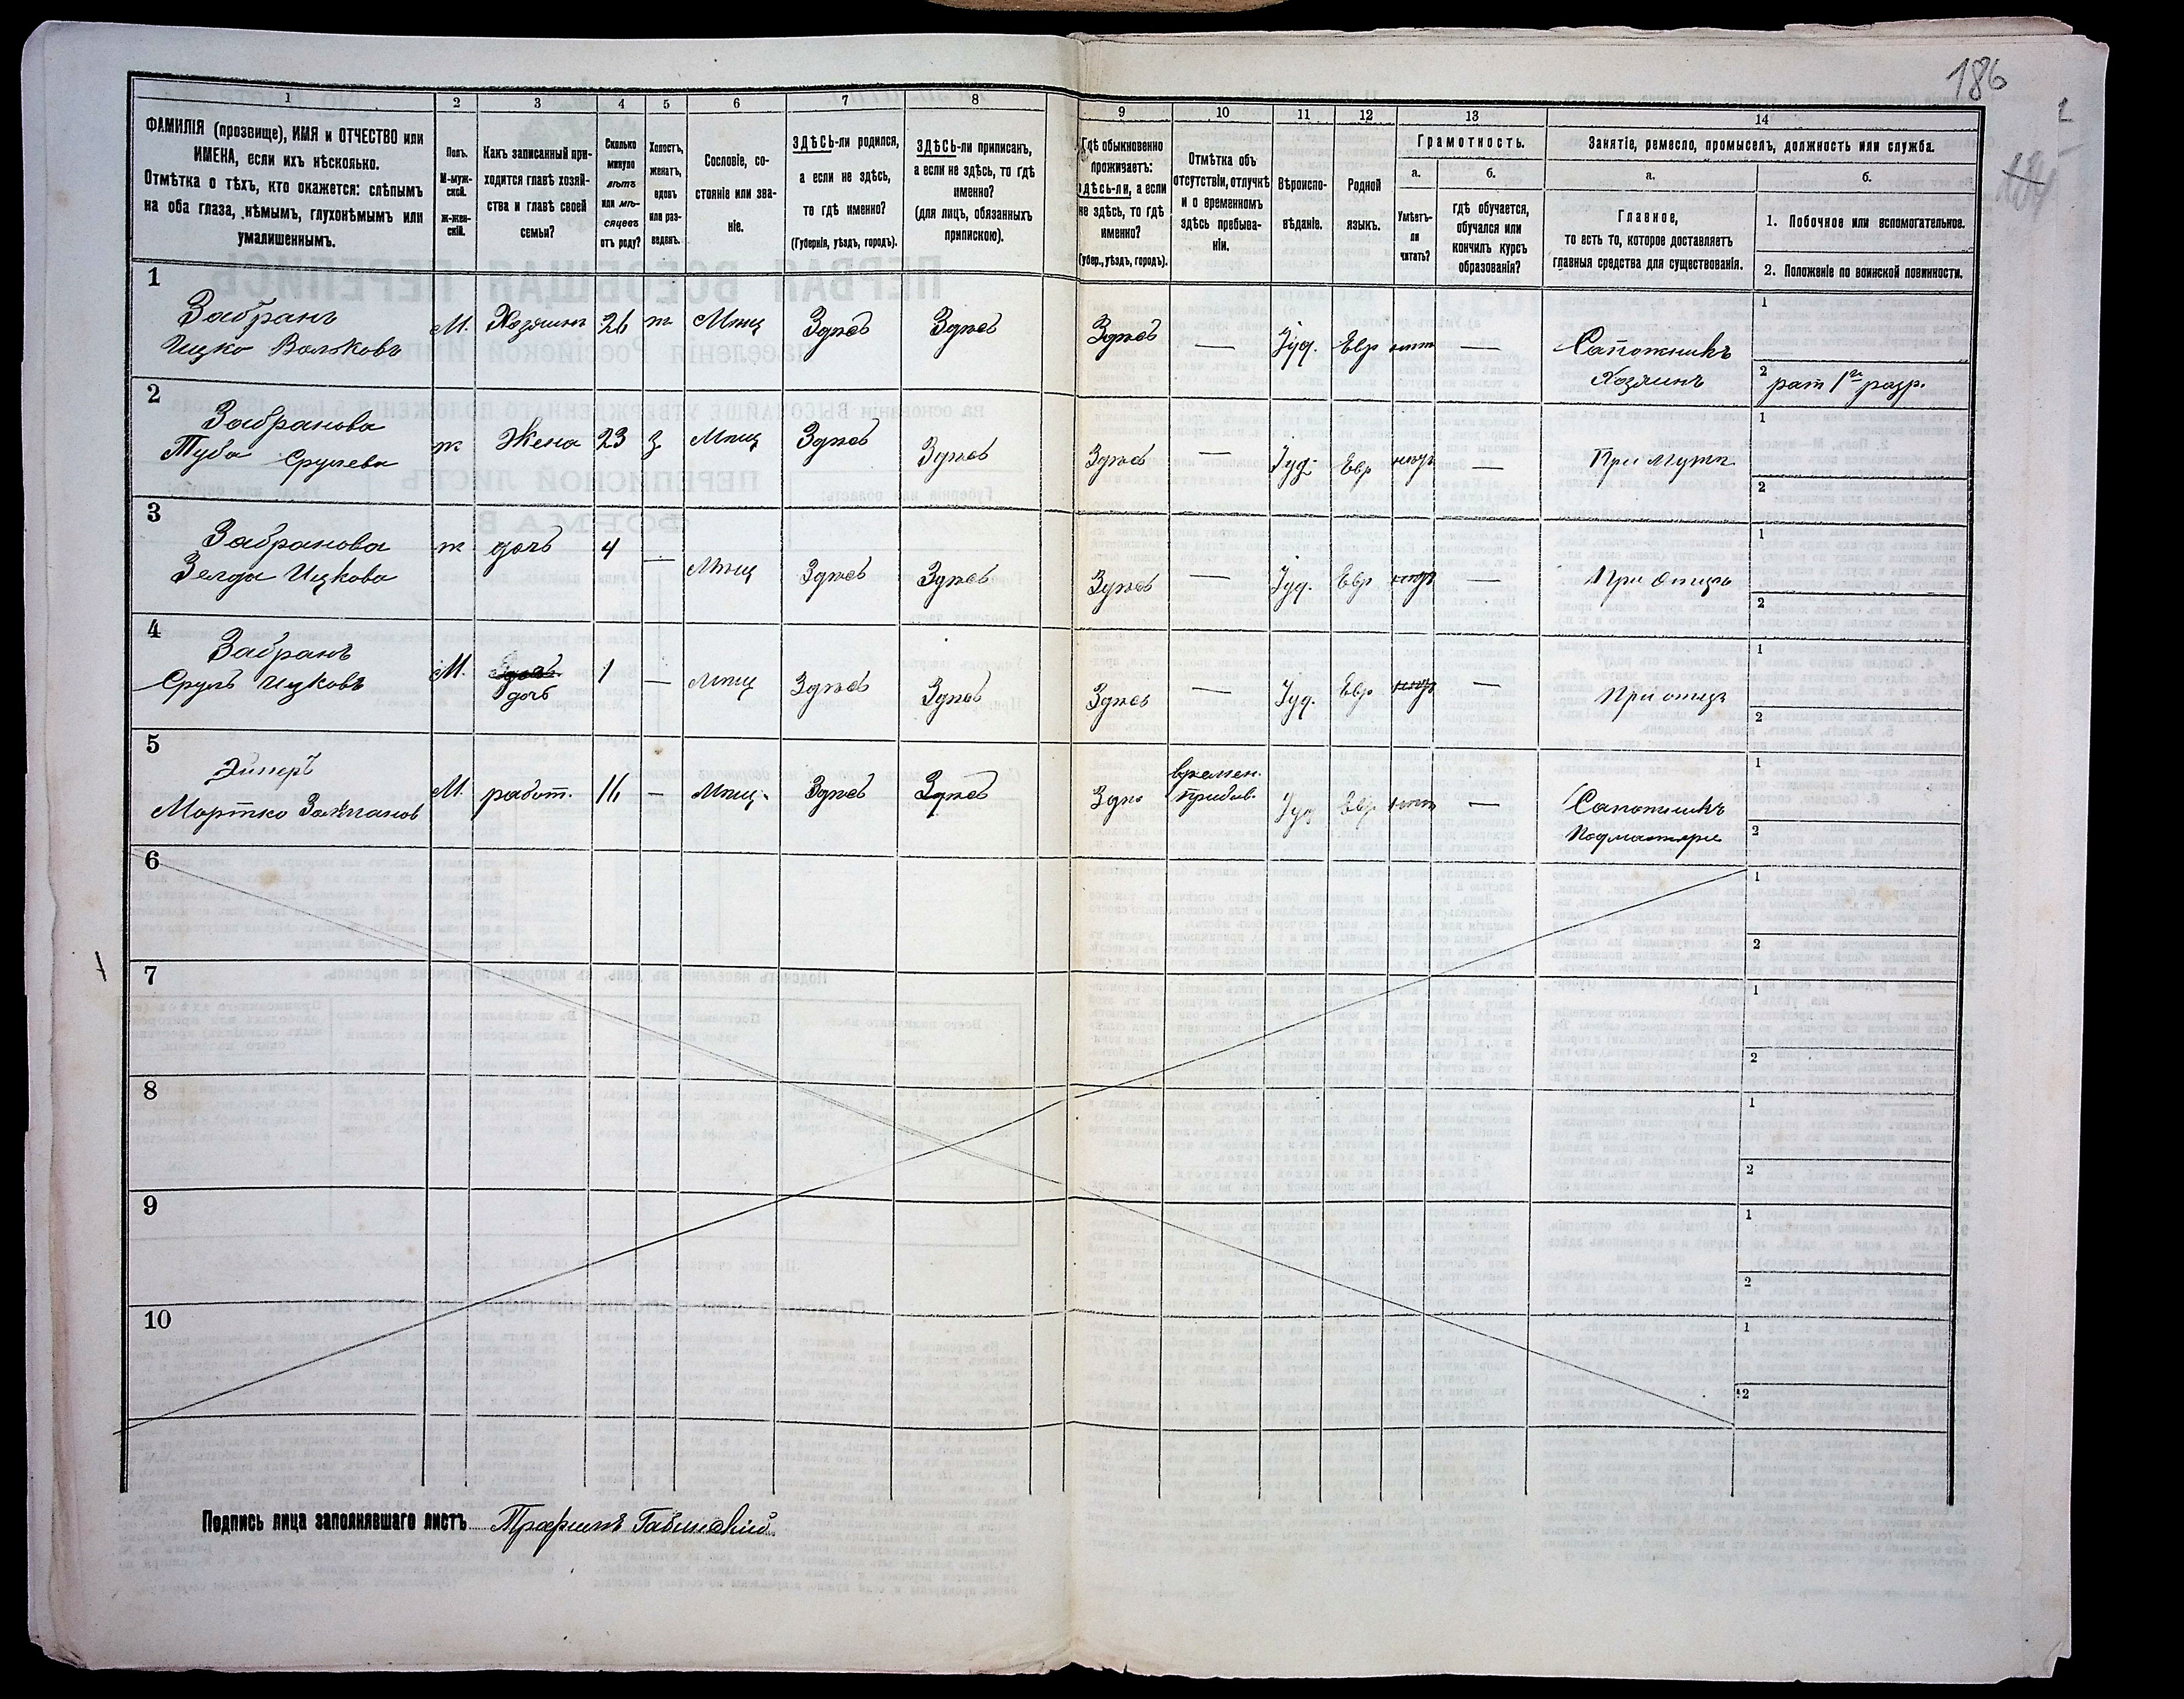 186
184
1
2
3
4
5
6
7
8
9
10
11
12
13
14
ФАМИЛІЯ (прозвище), ИМЯ и ОТЧЕСТВО или
ИМЕНА, если ихъ нѣсколько.
Отмѣтка о тѣхъ, кто окажется: слѣпымъ
на оба глаза, нѣмымъ, глухонѣмымъ или
умалишеннымъ.
Полъ.
М-муж-
ской.
Ж-жен-
скій.
Какъ записанный при-
ходится главѣ хозяй-
ства и главѣ своей
семьи?
Сколько
минуло
лѣтъ
или мѣ-
сяцевъ
отъ роду?
Холостъ,
женатъ,
вдовъ
или раз-
веденъ.
Сословіе, со-
стояніе или зва-
ніе.
ЗДѢСЬ-ли родился,
а если не здѣсь,
то гдѣ именно?
(Губернія, уѣздъ, городъ).
ЗДѢСЬ-ли приписанъ,
а если не здѣсь, то гдѣ
именно?
(для лицъ, обязанныхъ
припискою).
Гдѣ обыкновенно
проживаетъ:
здѣсь-ли, а если
не здѣсь, то гдѣ
именно?
(Губер., уѣздъ, городъ).
Отмѣтка объ
отсутствіи, отлучкѣ
и о временномъ
здѣсь пребыва-
ніи.
Вѣроиспо-
вѣданіе.
Родной
языкъ.
Грамотность.
а.
Умѣетъ-
ли
читать?
б.
гдѣ обучается,
обучался или
кончилъ курсъ
образованія?
Занятіе, ремесло, промыселъ, должность или служба.
а.
Главное,
то есть то, которое доставляетъ
главныя средства для существованія.
б.
1. Побочное или вспомогательное.
2. Положеніе по воинской повинности.
1
Забранъ
Ицко Вольковъ
М. Хозяинъ 26 ж Мѣщ Здѣсь Здѣсь Здѣсь — Іуд. Евр — Сапожникъ
Хозяинъ
1
2 рат 1го разр.
2
Забранова
Туба Срулева
ж Жена 23 з Мѣщ Здѣсь Здѣсь Здѣсь — Іуд. Евр — При мужѣ
1
2
3
Забранова
Зелда Ицкова
ж дочь 4 — Мѣщ Здѣсь Здѣсь Здѣсь — Іуд. Евр — При отцѣ
1
2
4
Забранъ
Сруль Ицковъ
М. дочь 1 — Мѣщ Здѣсь Здѣсь Здѣсь — Іуд. Евр — При отцѣ
1
2
5
Мортко
М. работ. 16 — Мѣщ. Здѣсь Здѣсь Здѣсь времен. Іуд Евр — Сапожникъ
Подмастерье
1
2
6
1
2
7
1
2
8
1
2
9
1
2
10
1
2
Подпись лица заполнявшаго листъ